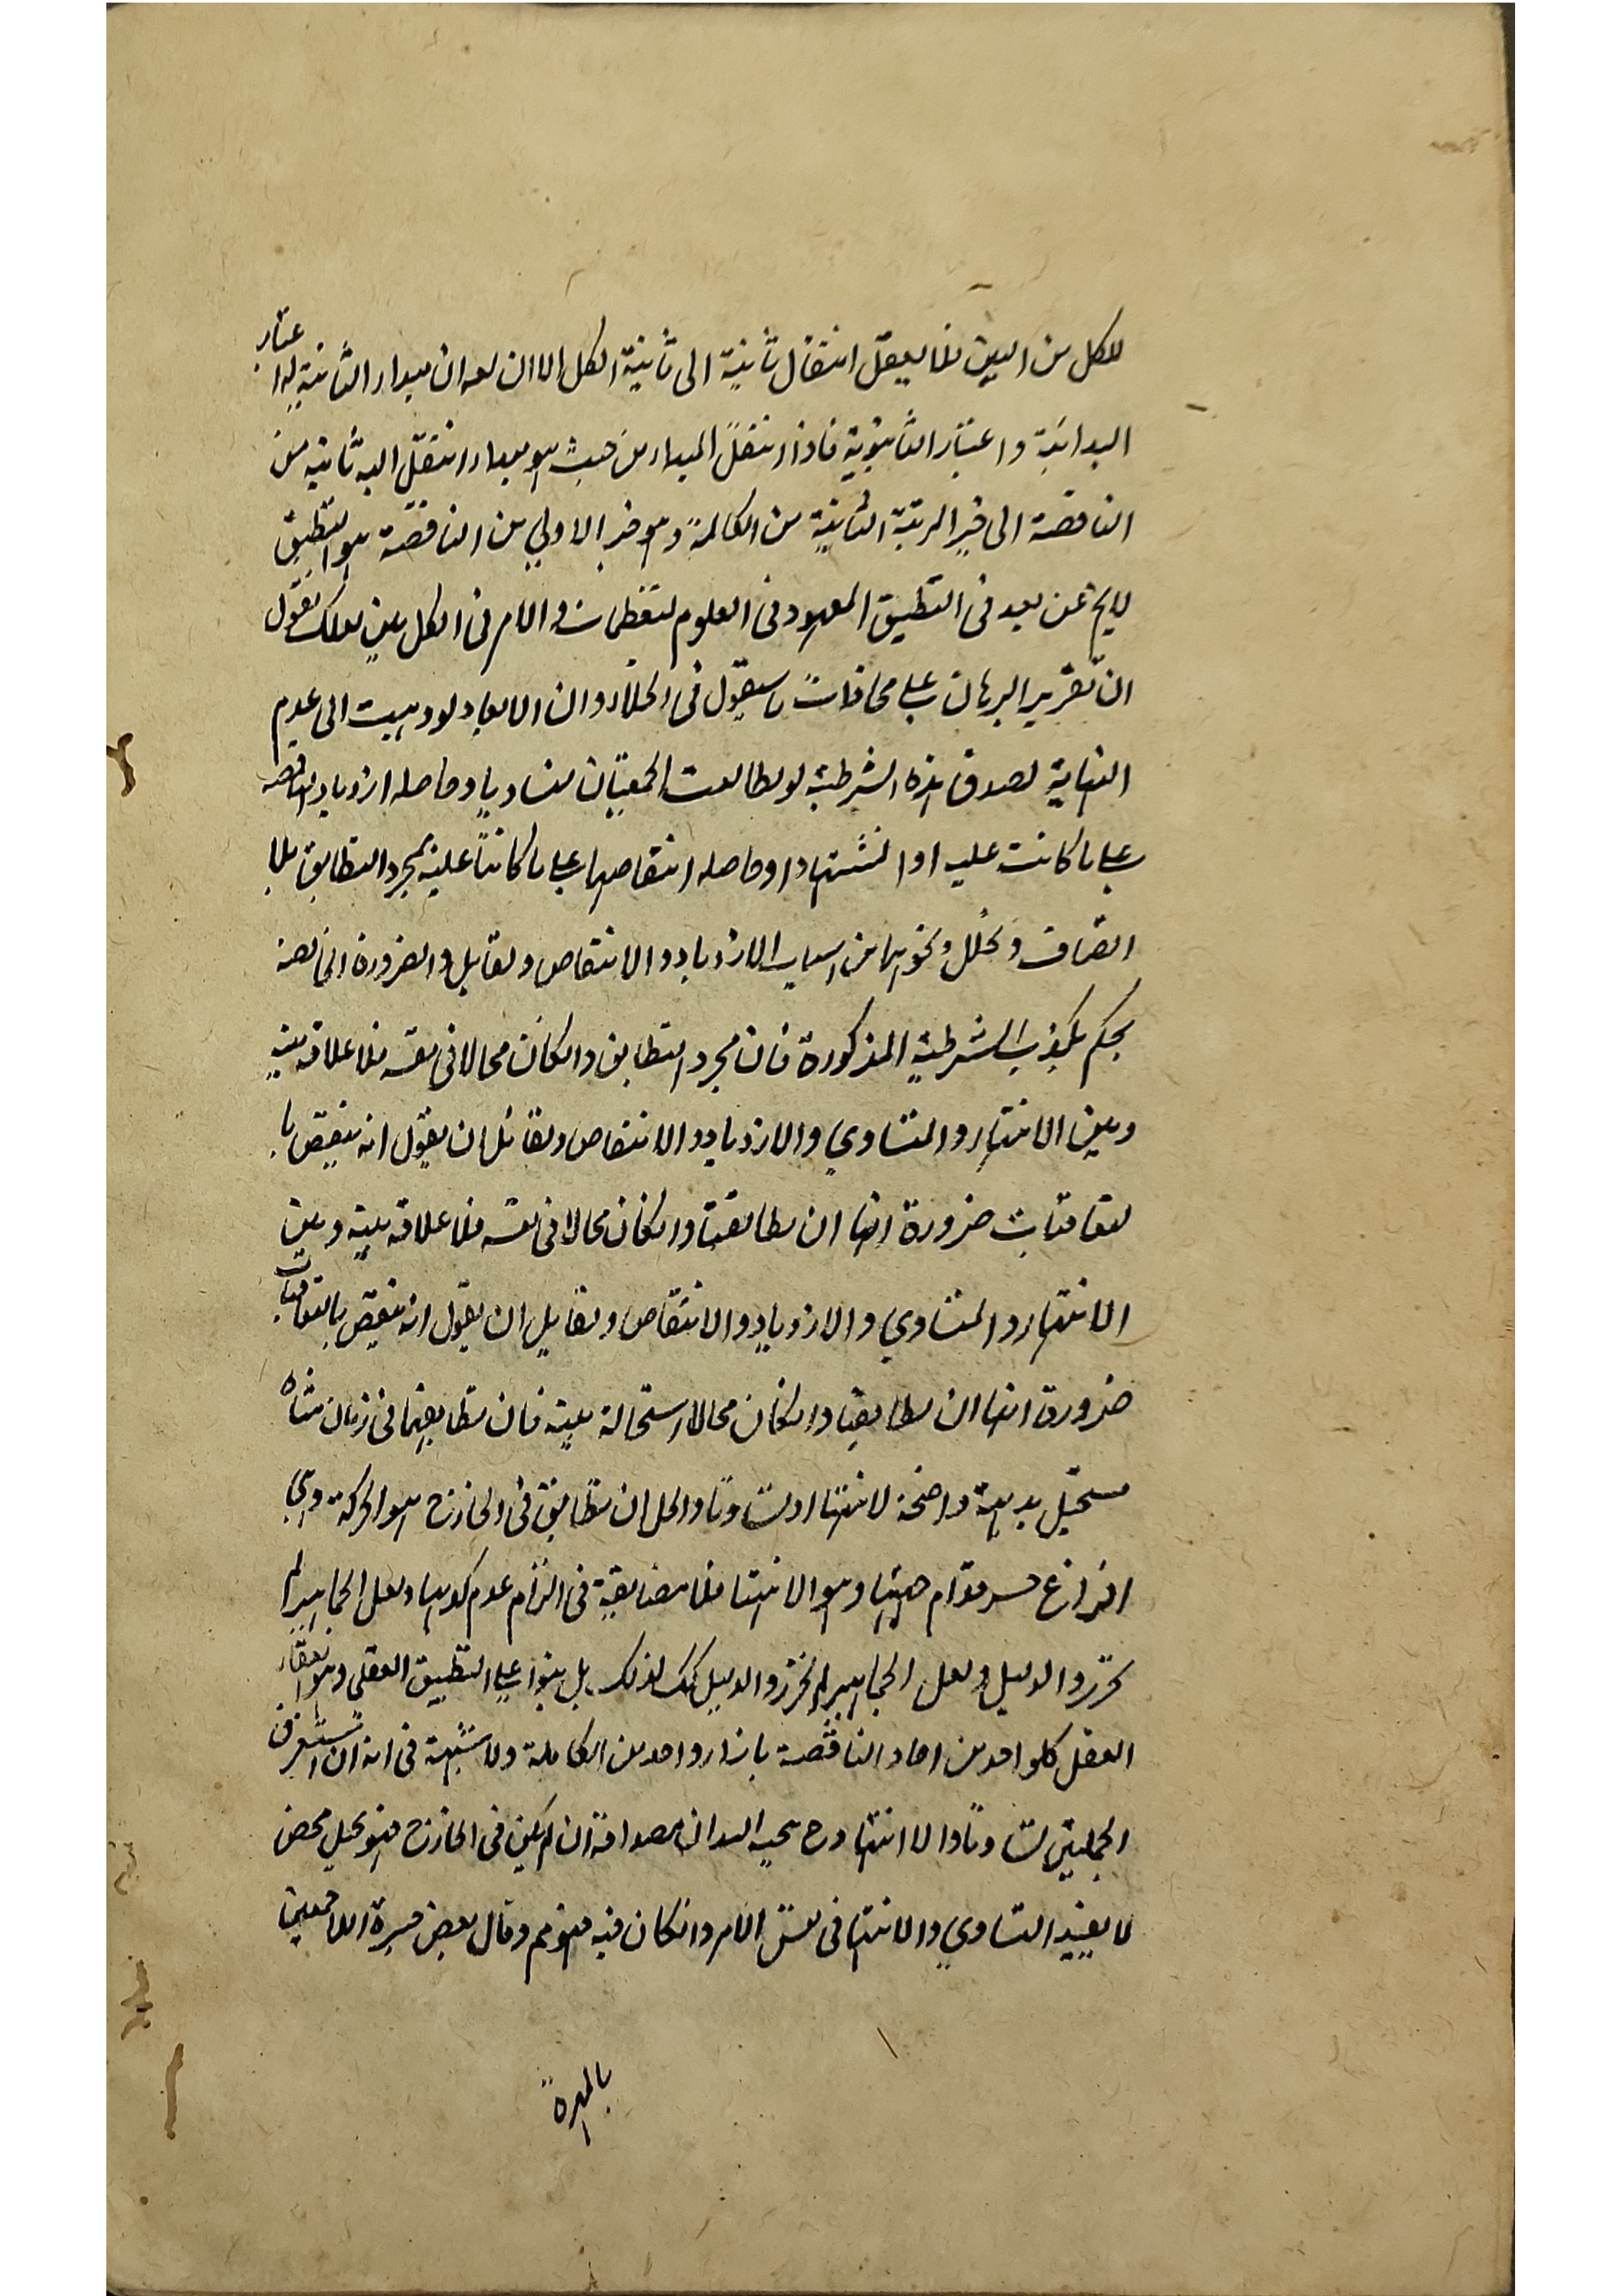 للكل من البين فلا يعقل انتقال ثانية الى ثانية الكل الا ان لعد ان مبدا الثانية لها اعتبار
البدائية و اعتبار الثانوية فاذا انتقل المبدا من حيث هو مبدا انتقل اليه ثانيه من
الناقصة الى حيز المرتبة الثانية من الكاملة وهو حيز الاولى من الناقصة هو التطبيق
لايخ عن بعد فى التطبيق المعهود فى العلوم لتعظمات و الامر فى الكل بين لعلك تقول
ان تقرير البرهان على محاذات ما سيقول فى الخلا ء ان الابعاد لو ذهبت الى عدم
النهاية لصدق هذه الشرطية لو تطابقت الجمعيتان تساويا و حاصله ازدياد الناقصة
على ما كانت عليه او انتهتا و حاصله انتقاصهما على ما كانتا عليه بمجرد التطابق بلا
انضياف و تخلل و نحوهما من اسباب الازدياد و الانتقاص و لقايل و الضرورة الخالصة
يحكم بكذب الشرطية المذكورة فان مجرد التطابق و انكان محالا فى نفسه فلا علاقة بينه
و بين الانتهاء و التساوي و الازدياد و الانتقاص و لقائل ان يقول انه ينتقض با
لتعاقبات ضرورة انها ان تطابقتا و انكان محالا فى نفسه فلا علاقة بينه و بين
الانتهاء و التساوي و الازدياد و الانتقاص و لقايل ان يقول انه ينتقض بالتعاقبات
ضرورة انها ان تطابقتا و انكان محالا استحالة بينة فان تطابقهما فى زمان متناه
مستحيل بديهة واضحة لانتهتا او تساوتا و الحل ان تطابق فى الخارج هو الحركة وهي
افراغ حيز قوام جهتها وهو الانتها فلا مضايقة فى التزام عدم كونها و لعل الجماهير لم
تحرزوا الدليل و لعل الجماهير لم يحرزوا الدليل كك لذلك بل بنوا على التطبيق العقلي وهو ايقاع
العقل كلواحد من احاد الناقصة بازاء واحد من الكاملة و لا شبهة فى انه ان استغرق
الجملتين تساوتا و الا انتهتا و ح يجب ان مصداقه ان لم يكن فى الخارج فهو تخيل محض
لا يفيد التساوي و الانتها فى نفس الامر و انكان فيه فهو ثم و قال بعض خيرة اللاحقين
بالمهرة